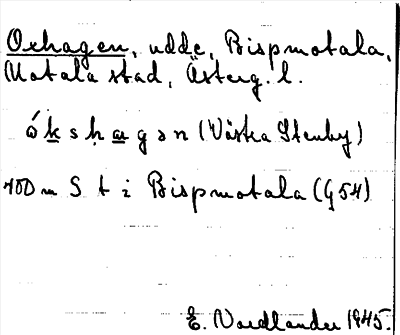 Oxhagen, udde, Bispmotala,
Motala stad, Österg. l.
ókshagən (Västra Stenby)
400 m S t i Bispmotala (G54)
E. Nordlander 1945.